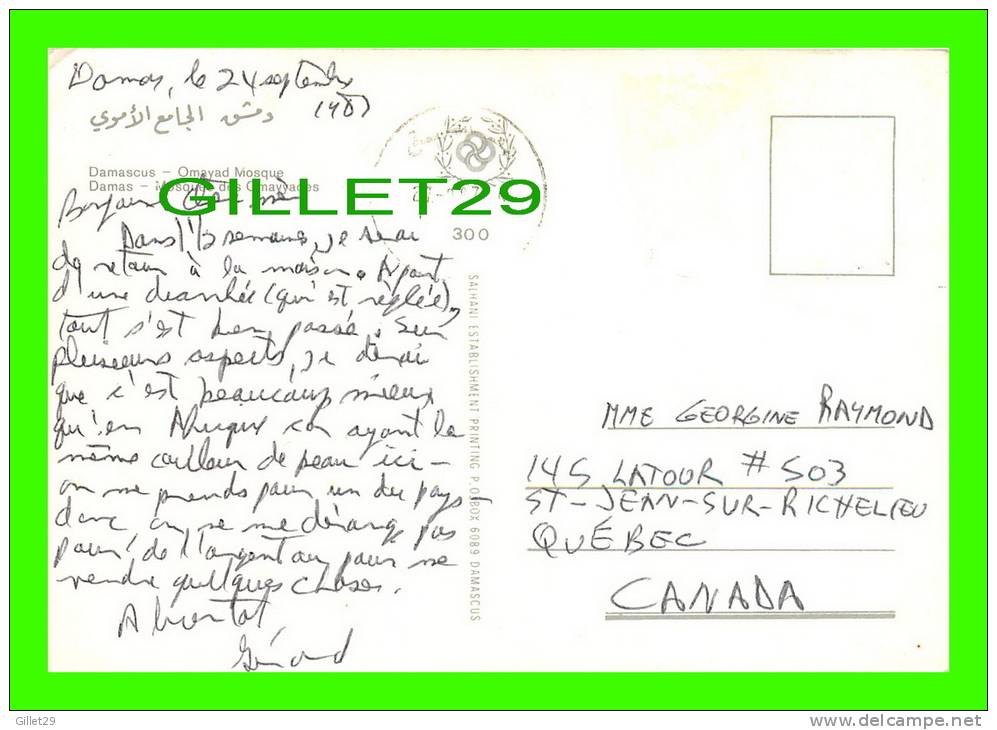 Damas, le 24 septembre
دمشق الجامع الأموي
Damascus – Omayad Mosque
Damas – Mosquée des Omayyades
GILLET29
300
Bonjour
Dans 1½ semaines, je serai
de retour à la maison. Apart
d'une diarrhée (qui est réglée),
tout s'est bien passé. Sur
plusieurs aspects, je dirai
que c'est beaucoup mieux
qu'en Afrique car ayant la
même couleur de peau ici -
on me prends pour un du pays -
donc on ne me dérange pas
pour de l'argent ou pour me
vendre quelques choses.
A bientot
Gérard
SALHANI ESTABLISHMENT PRINTING P.O.BOX 6089 DAMASCUS
MME GEORGINE RAYMOND
145 LATOUR # 503
ST-JEAN-SUR-RICHELIEU
QUÉBEC
CANADA
Gillet29
delcampe.net